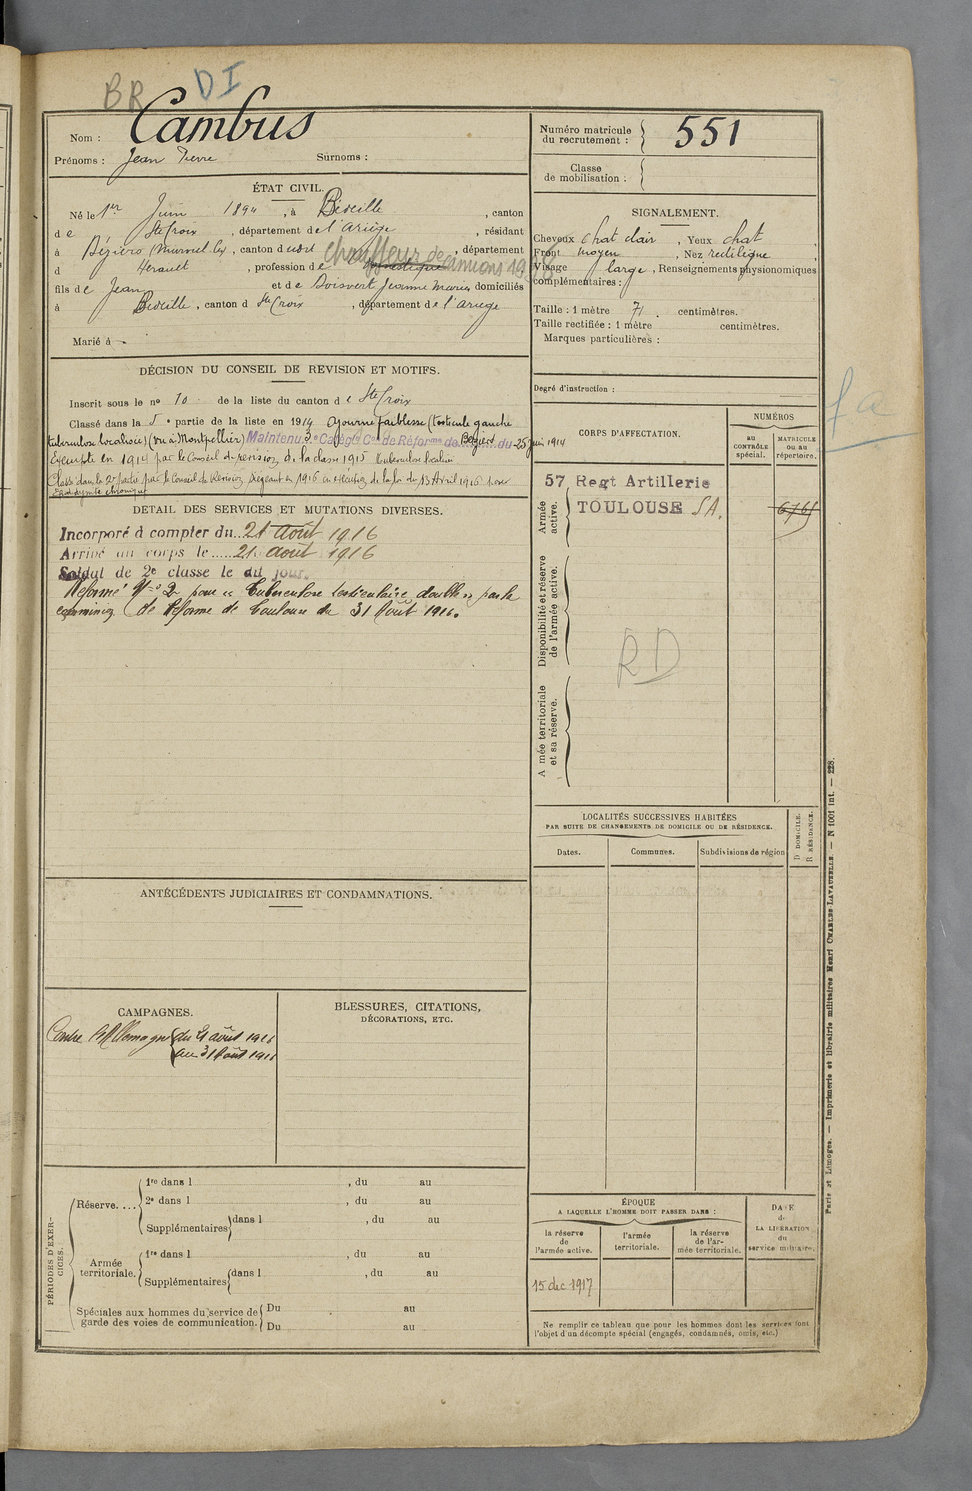 BR DI
Nom : Cambus
Prénoms : Jean Pierre Surnoms :
Numéro matricule du recrutement : 551
Classe de mobilisation :
ÉTAT CIVIL.
Né le 1er Juin 1894, à Bédeille, canton
de Ste Croix, département de l'Ariège, résidant
à Béziers, canton d, département
d Hérault, profession de chauffeur de camions 1916
fils de Jean et de Jeanne Marie domiciliés
à Bédeille, canton d Ste Croix, département de l'Ariège
Marié à
SIGNALEMENT.
Cheveux chat clair, Yeux chat
Front moyen, Nez rectiligne
Visage large, Renseignements physionomiques
complémentaires :
Taille : 1 mètre 71 centimètres.
Taille rectifiée : 1 mètre centimètres.
Marques particulières :
Degré d'instruction :
DÉCISION DU CONSEIL DE REVISION ET MOTIFS.
Inscrit sous le no 10 de la liste du canton de Ste Croix
Classé dans la 5e partie de la liste en 1914 ajourné faiblesse (testicule gauche
tuberculose localisée) (vu à Montpellier) Maintenu 3e Catégie Con de Réforme de Béziers du 25 juin 1914
Exempté en 1914 par le Conseil de revision de la classe 1915 tuberculose
Classé dans la 2e partie par le Conseil de Revision siégeant en 1916 en exécution de la loi du 13 Avril 1916 pour
Epididymite chronique
DÉTAIL DES SERVICES ET MUTATIONS DIVERSES.
Incorporé à compter du 21 août 1916
Arrivé au corps le 21 août 1916
Soldat de 2e classe le dit jour.
Réformé No 2 pour « Tuberculose testiculaire double » par la
commission de Réforme de Toulouse du 31 Août 1916.
CORPS D'AFFECTATION.
NUMÉROS
au CONTRÔLE spécial.
MATRICULE ou au répertoire.
Armée active.
57 Regt Artillerie
TOULOUSE SA.
6765
Disponibilité et réserve de l'armée active.
RD
Armée territoriale et sa réserve.
fa
LOCALITÉS SUCCESSIVES HABITÉES
PAR SUITE DE CHANGEMENTS DE DOMICILE OU DE RÉSIDENCE.
Dates. Communes. Subdivisions de région
D DOMICILE. R RÉSIDENCE.
ANTÉCÉDENTS JUDICIAIRES ET CONDAMNATIONS.
CAMPAGNES.
Contre l'Allemagne du 21 août 1916
au 31 Août 1916
BLESSURES, CITATIONS,
DÉCORATIONS, ETC.
PÉRIODES D'EXERCICES.
Réserve.... 1re dans l , du au
2e dans l , du au
Supplémentaires dans l , du au
Armée territoriale. 1re dans l , du au
Supplémentaires dans l , du au
Spéciales aux hommes du service de Du au
garde des voies de communication. Du au
ÉPOQUE
A LAQUELLE L'HOMME DOIT PASSER DANS :
la réserve de l'armée active.
l'armée territoriale.
la réserve de l'armée territoriale.
DATE de LA LIBÉRATION du service militaire.
15 dec 1917
Ne remplir ce tableau que pour les hommes dont les services font
l'objet d'un décompte spécial (engagés, condamnés, omis, etc.)
Paris et Limoges. — Imprimerie et librairie militaires Henri CHARLES-LAVAUZELLE. — N 1001 int. — 228.